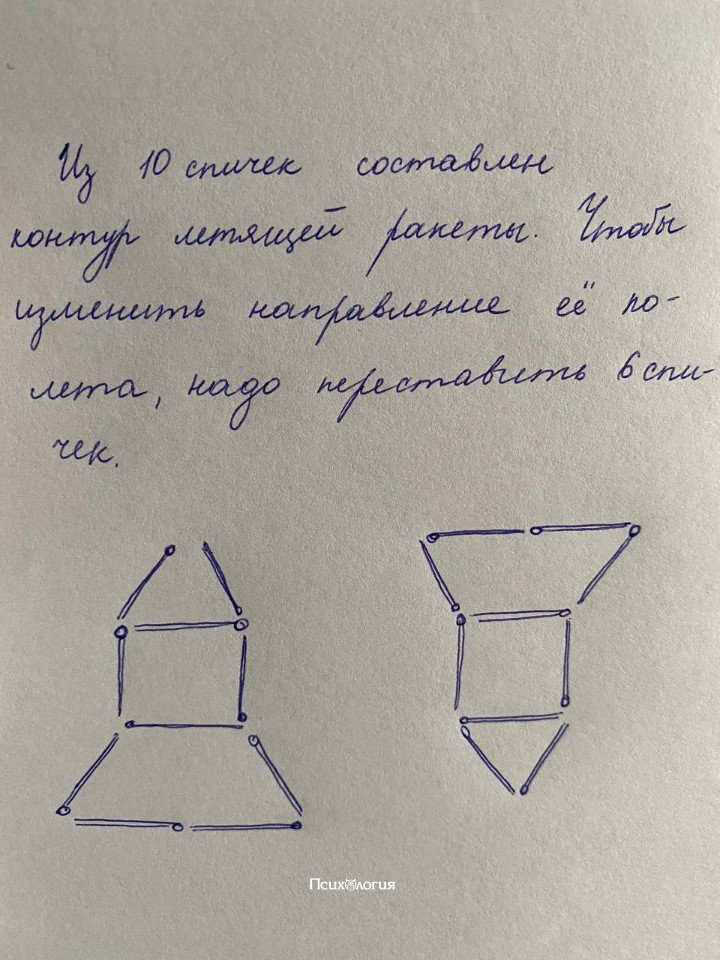 Из 10 спичек составлен
контур летящей ракеты. Чтобы
изменить направление её по-
лета, надо переставить 6 спи-
чек.
Психология